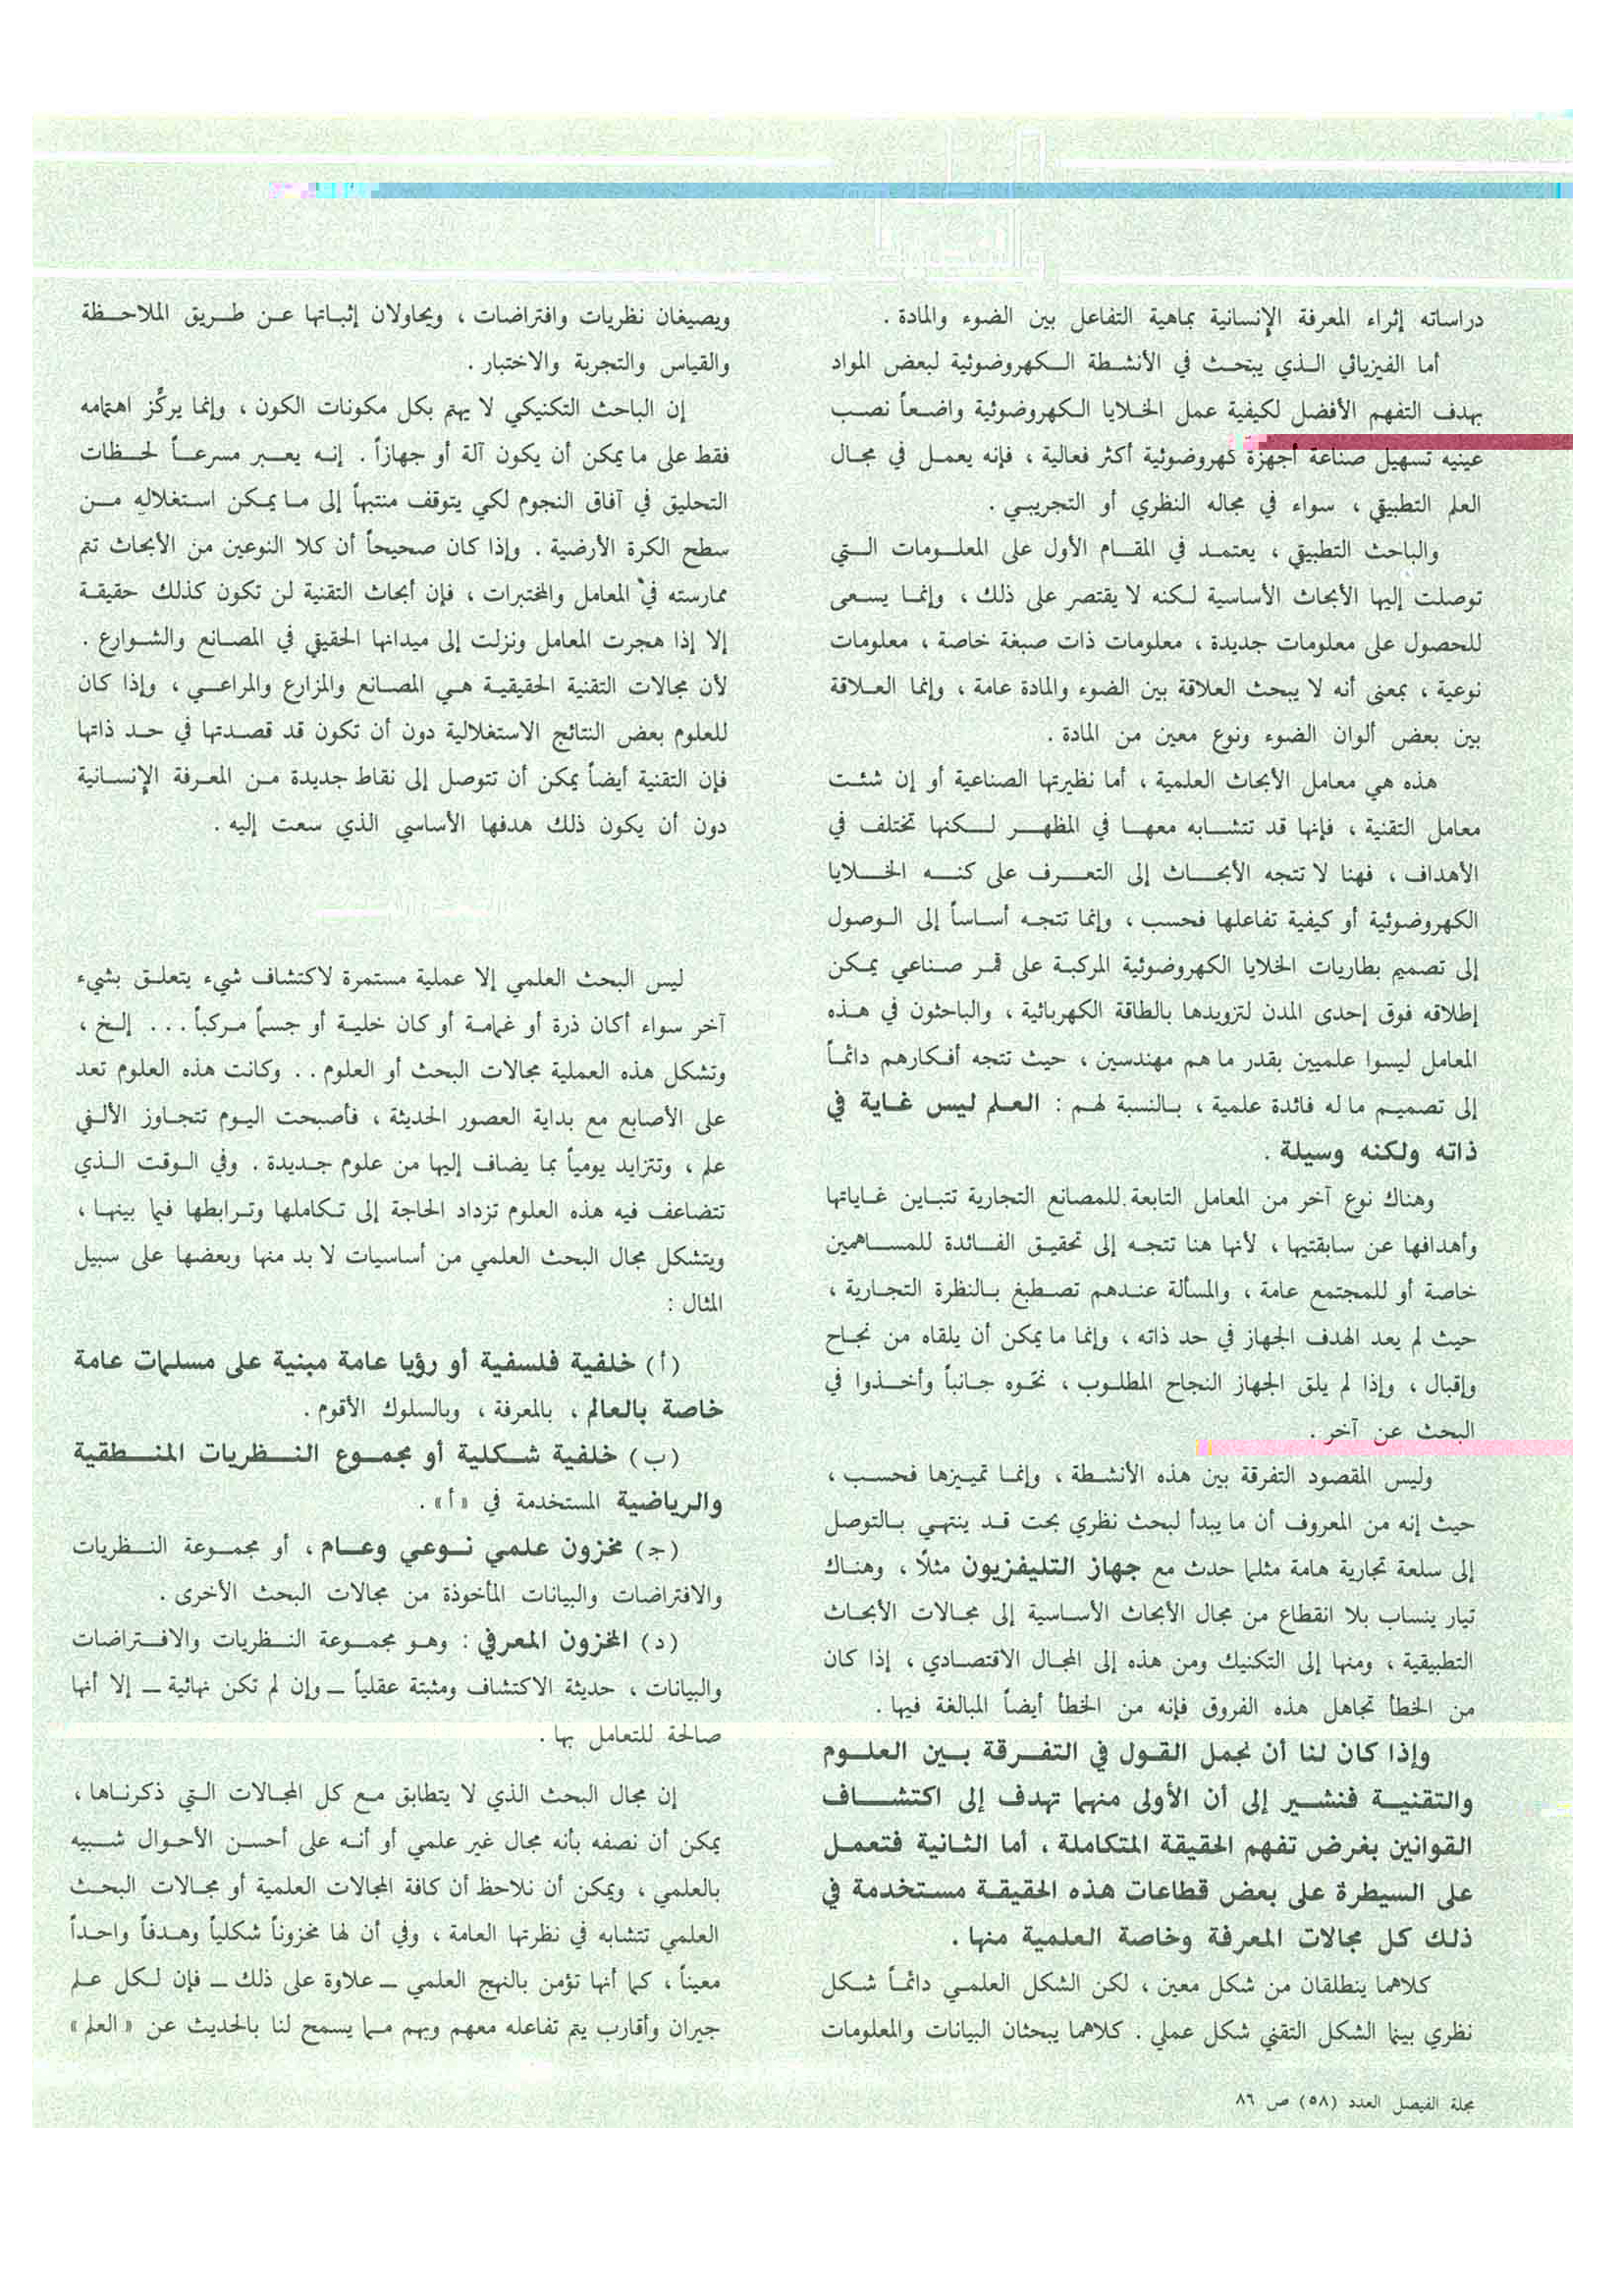 دراساته إثراء المعرفة الإنسانية بماهية التفاعل بين الضوء والمادة .
أما الفيزيائي الذي يبحث في الأنشطة الكهروضوئية لبعض المواد
بهدف التفهم الأفضل لكيفية عمل الخلايا الكهروضوئية واضعاً نصب
عينيه تسهيل صناعة أجهزة كهروضوئية أكثر فعالية ، فإنه يعمل في مجال
العلم التطبيقي ، سواء في مجاله النظري أو التجريبي .
والباحث التطبيقي ، يعتمد في المقام الأول على المعلومات التي
توصلت إليها الأبحاث الأساسية لكنه لا يقتصر على ذلك ، وإنما يسعى
للحصول على معلومات جديدة ، معلومات ذات صبغة خاصة ، معلومات
نوعية ، بمعنى أنه لا يبحث العلاقة بين الضوء والمادة عامة ، وإنما العلاقة
بين بعض ألوان الضوء ونوع معين من المادة .
هذه هي معامل الأبحاث العلمية ، أما نظيرتها الصناعية أو إن شئت
معامل التقنية ، فإنها قد تتشابه معها في المظهر لكنها تختلف في
الأهداف ، فهنا لا تتجه الأبحاث إلى التعرف على كنه الخلايا
الكهروضوئية أو كيفية تفاعلها فحسب ، وإنما تتجه أساساً إلى الوصول
إلى تصميم بطاريات الخلايا الكهروضوئية المركبة على قمر صناعي يمكن
إطلاقه فوق إحدى المدن لتزويدها بالطاقة الكهربائية ، والباحثون في هذه
المعامل ليسوا علميين بقدر ما هم مهندسين ، حيث تتجه أفكارهم دائماً
إلى تصميم ما له فائدة علمية ، بالنسبة لهم : العلم ليس غاية في
ذاته ولكنه وسيلة .
وهناك نوع آخر من المعامل التابعة للمصانع التجارية تتباين غاياتها
وأهدافها عن سابقتيها ، لأنها هنا تتجه إلى تحقيق الفائدة للمساهمين
خاصة أو للمجتمع عامة ، والمسألة عندهم تصطبغ بالنظرة التجارية ،
حيث لم يعد الهدف الجهاز في حد ذاته ، وإنما ما يمكن أن يلقاه من نجاح
وإقبال ، وإذا لم يلق الجهاز النجاح المطلوب ، نحّوه جانباً وأخذوا في
البحث عن آخر .
وليس المقصود التفرقة بين هذه الأنشطة ، وإنما تمييزها فحسب ،
حيث إنه من المعروف أن ما يبدأ لبحث نظري بحت قد ينتهي بالتوصل
إلى سلعة تجارية هامة مثلما حدث مع جهاز التليفزيون مثلاً ، وهناك
تيار ينساب بلا انقطاع من مجال الأبحاث الأساسية إلى مجالات الأبحاث
التطبيقية ، ومنها إلى التكنيك ومن هذه إلى المجال الاقتصادي ، إذا كان
من الخطأ تجاهل هذه الفروق فإنه من الخطأ أيضاً المبالغة فيها .
وإذا كان لنا أن نجمل القول في التفرقة بين العلوم
والتقنية فنشير إلى أن الأولى منهما تهدف إلى اكتشاف
القوانين بغرض تفهم الحقيقة المتكاملة ، أما الثانية فتعمل
على السيطرة على بعض قطاعات هذه الحقيقة مستخدمة في
ذلك كل مجالات المعرفة وخاصة العلمية منها .
كلاهما ينطلقان من شكل معين ، لكن الشكل العلمي دائماً شكل
نظري بينما الشكل التقني شكل عملي . كلاهما يبحثان البيانات والمعلومات
ويصيغان نظريات وافتراضات ، ويحاولان إثباتها عن طريق الملاحظة
والقياس والتجربة والاختبار .
إن الباحث التكنيكي لا يهتم بكل مكونات الكون ، وإنما يركّز اهتمامه
فقط على ما يمكن أن يكون آلة أو جهازاً . إنه يعبر مسرعاً لحظات
التحليق في آفاق النجوم لكي يتوقف منتبهاً إلى ما يمكن استغلاله من
سطح الكرة الأرضية . وإذا كان صحيحاً أن كلا النوعين من الأبحاث تتم
ممارسته في المعامل والمختبرات ، فإن أبحاث التقنية لن تكون كذلك حقيقة
إلا إذا هجرت المعامل ونزلت إلى ميدانها الحقيقي في المصانع والشوارع .
لأن مجالات التقنية الحقيقية هي المصانع والمزارع والمراعي ، وإذا كان
للعلوم بعض النتائج الاستغلالية دون أن تكون قد قصدتها في حد ذاتها
فإن التقنية أيضاً يمكن أن تتوصل إلى نقاط جديدة من المعرفة الإنسانية
دون أن يكون ذلك هدفها الأساسي الذي سعت إليه .
ليس البحث العلمي إلا عملية مستمرة لاكتشاف شيء يتعلق بشيء
آخر سواء أكان ذرة أو غمامة أو كان خلية أو جسماً مركباً ... إلخ ،
وتشكل هذه العملية مجالات البحث أو العلوم .. وكانت هذه العلوم تعد
على الأصابع مع بداية العصور الحديثة ، فأصبحت اليوم تتجاوز الألفي
علم ، وتتزايد يومياً بما يضاف إليها من علوم جديدة . وفي الوقت الذي
تتضاعف فيه هذه العلوم تزداد الحاجة إلى تكاملها وترابطها فيما بينها ،
ويتشكل مجال البحث العلمي من أساسيات لا بد منها وبعضها على سبيل
المثال :
(أ) خلفية فلسفية أو رؤيا عامة مبنية على مسلمات عامة
خاصة بالعالم ، بالمعرفة ، وبالسلوك الأقوم .
(ب) خلفية شكلية أو مجموع النظريات المنطقية
والرياضية المستخدمة في « أ » .
(ج) مخزون علمي نوعي وعام ، أو مجموعة النظريات
والافتراضات والبيانات المأخوذة من مجالات البحث الأخرى .
(د) المخزون المعرفي : وهو مجموعة النظريات والافتراضات
والبيانات ، حديثة الاكتشاف ومثبتة عقلياً ــ وإن لم تكن نهائية ــ إلا أنها
صالحة للتعامل بها .
إن مجال البحث الذي لا يتطابق مع كل المجالات التي ذكرناها ،
يمكن أن نصفه بأنه مجال غير علمي أو أنه على أحسن الأحوال شبيه
بالعلمي ، ويمكن أن نلاحظ أن كافة المجالات العلمية أو مجالات البحث
العلمي تتشابه في نظرتها العامة ، وفي أن لها مخزوناً شكلياً وهدفاً واحداً
معيناً ، كما أنها تؤمن بالنهج العلمي ــ علاوة على ذلك ــ فإن لكل علم
جيران وأقارب يتم تفاعله معهم وبهم مما يسمح لنا بالحديث عن « العلم »
مجلة الفيصل العدد (٥٨) ص ٨٦